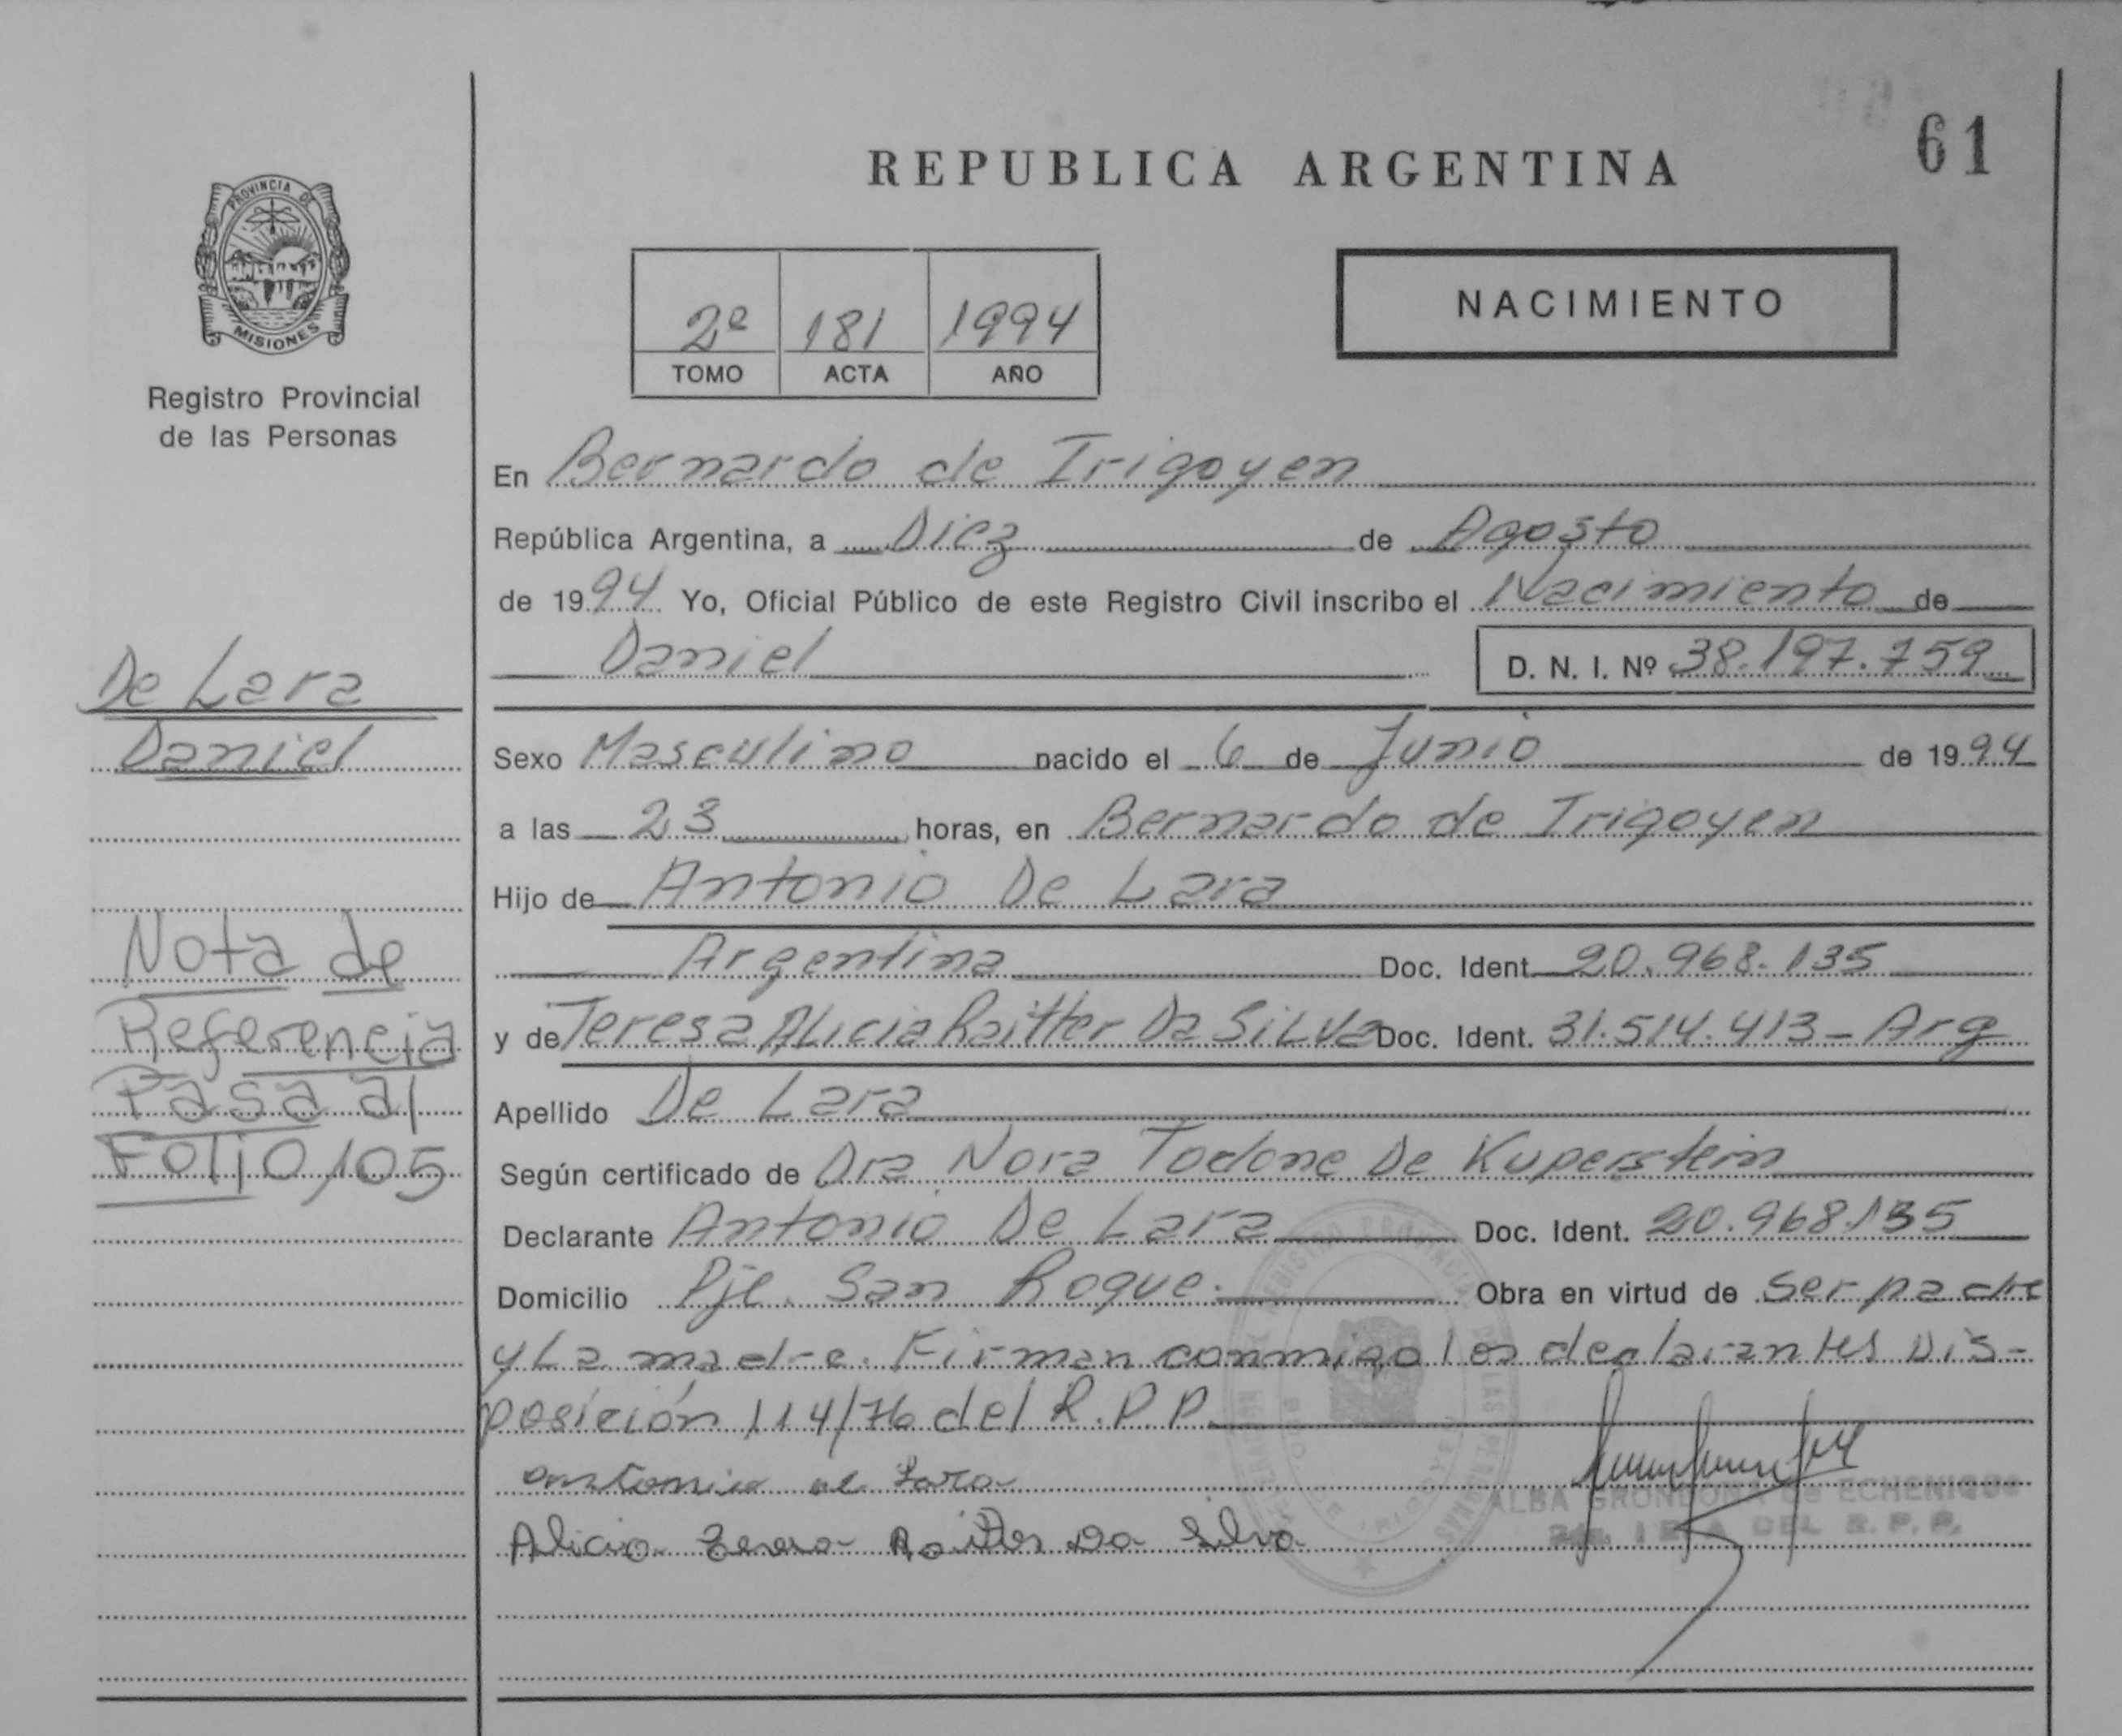 61
REPUBLICA ARGENTINA
PROVINCIA DE
MISIONES
Registro Provincial
de las Personas
2º 181 1994
TOMO ACTA AÑO
NACIMIENTO
En Bernardo de Irigoyen
República Argentina, a Diez de Agosto
de 1994 Yo, Oficial Público de este Registro Civil inscribo el Nacimiento de
Daniel D. N. I. Nº 38.197.759
De Lara
Daniel
Sexo Masculino nacido el 6 de Junio de 1994
a las 23 horas, en Bernardo de Irigoyen
Hijo de Antonio De Lara
Argentina Doc. Ident. 20.968.135
y de Teresa Alicia Raitter Da Silva Doc. Ident. 31.514.413 - Arg
Apellido De Lara
Según certificado de Dra Nora Todone De Kuperstein
Declarante Antonio De Lara Doc. Ident. 20.968.135
Domicilio Pje. San Roque. Obra en virtud de ser padre
y La madre. Firman conmigo los declarantes Dis-
posición 114/76 del R.P.P.
Nota de
Referencia
Pasa al
Folio 105
Antonio de Lara
Alicia Teresa Raitter Da Silva
ALBA GRONDONA de ECHENIQUE
DEL R.P.P.